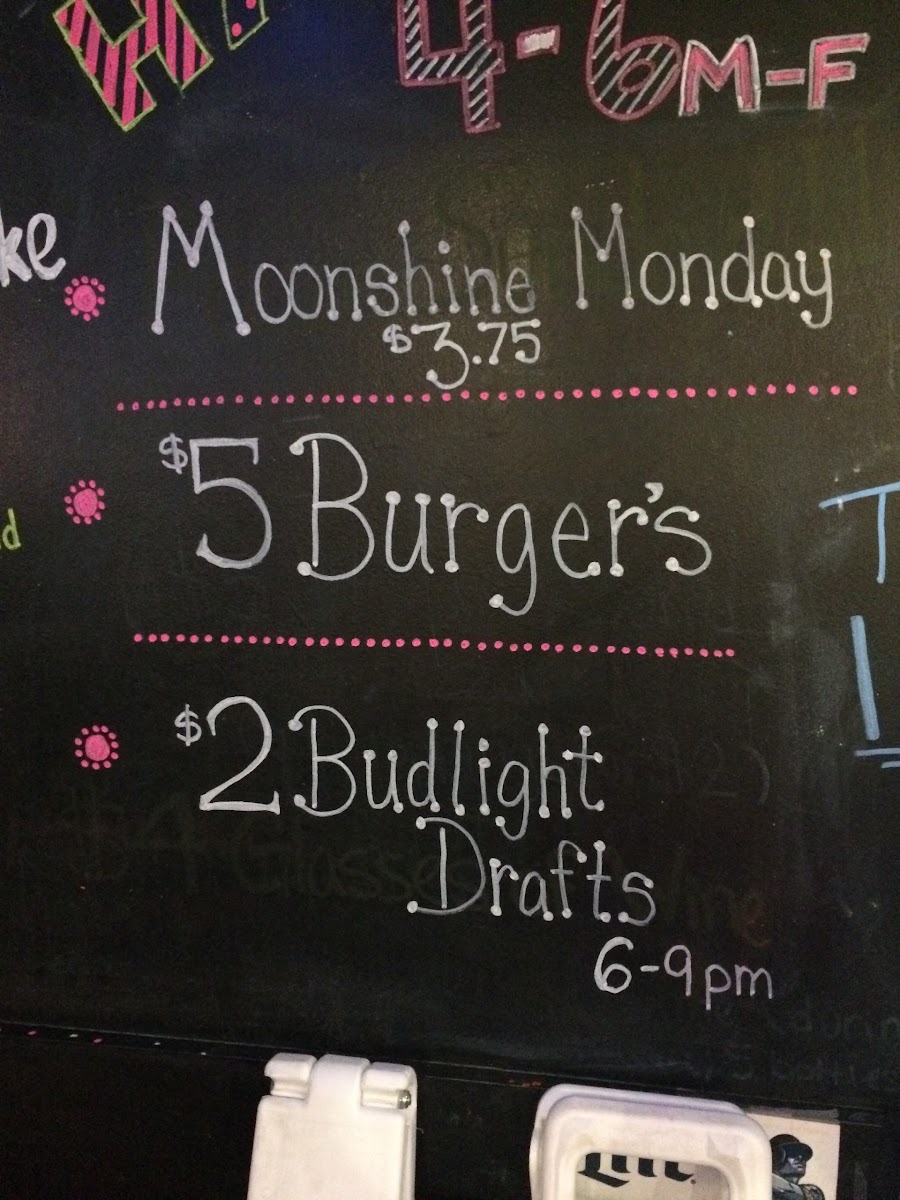 4-6 M-F
ke
Moonshine Monday
$3.75
$5 Burger's
d
$2 Budlight
Drafts
6-9pm
Lite